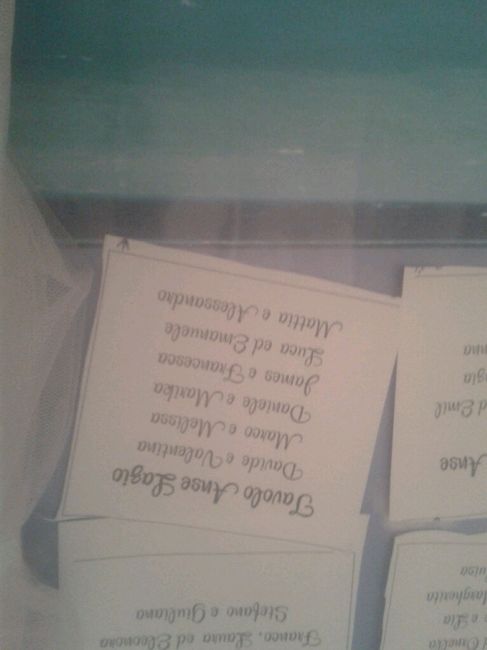 Tavolo Anse Lazio
Davide e Valentina
Marco e Melissa
Daniele e Marika
James e Francesca
Luca ed Emanuele
Mattia e Alessandro
Franco, Laura ed Eleonora
Stefano e Giuliana
Anse
ed Emil
e Lia